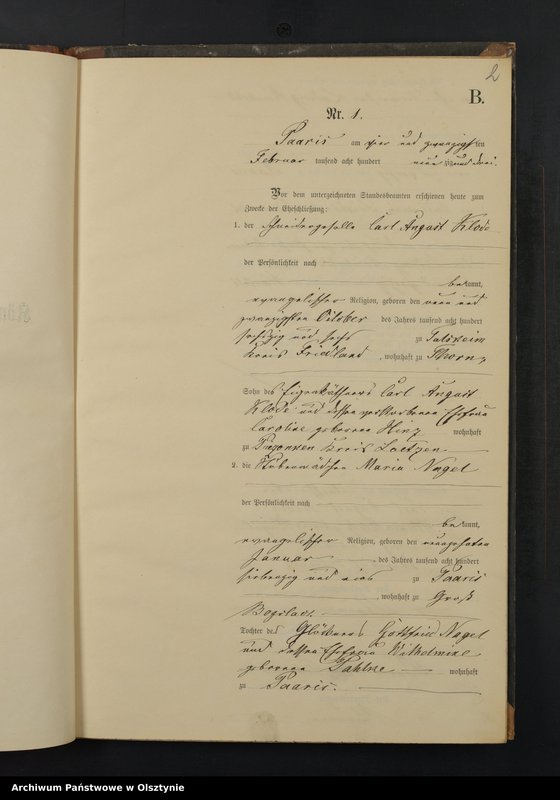 2
B.
Nr. 1.
Paaris am vier und zwanzigsten
Februar tausend acht hundert neunzig und drei.
Vor dem unterzeichneten Standesbeamten erschienen heute zum
Zwecke der Eheschließung:
1. der Schneidergeselle Carl August Klode
der Persönlichkeit nach
bekannt,
evangelischer Religion, geboren den neun und
zwanzigsten Oktober des Jahres tausend acht hundert
sechszig und sechs zu
Kreis Friedland, wohnhaft zu Thorn,
Sohn des Eigenkäthners Carl August
Klode und dessen verstorbenen Ehefrau
Caroline geborenen Hinz wohnhaft
zu Kreis Loetzen
2. die Stubenmädchen Maria Nagel
der Persönlichkeit nach
bekannt,
evangelischer Religion, geboren den neunzehnten
Januar des Jahres tausend acht hundert
siebenzig und eins zu Paaris
, wohnhaft zu Groß
Tochter des Glöckners Gottfried Nagel
und dessen Ehefrau Wilhelmine
geborenen wohnhaft
zu Paaris.
Archiwum Państwowe w Olsztynie